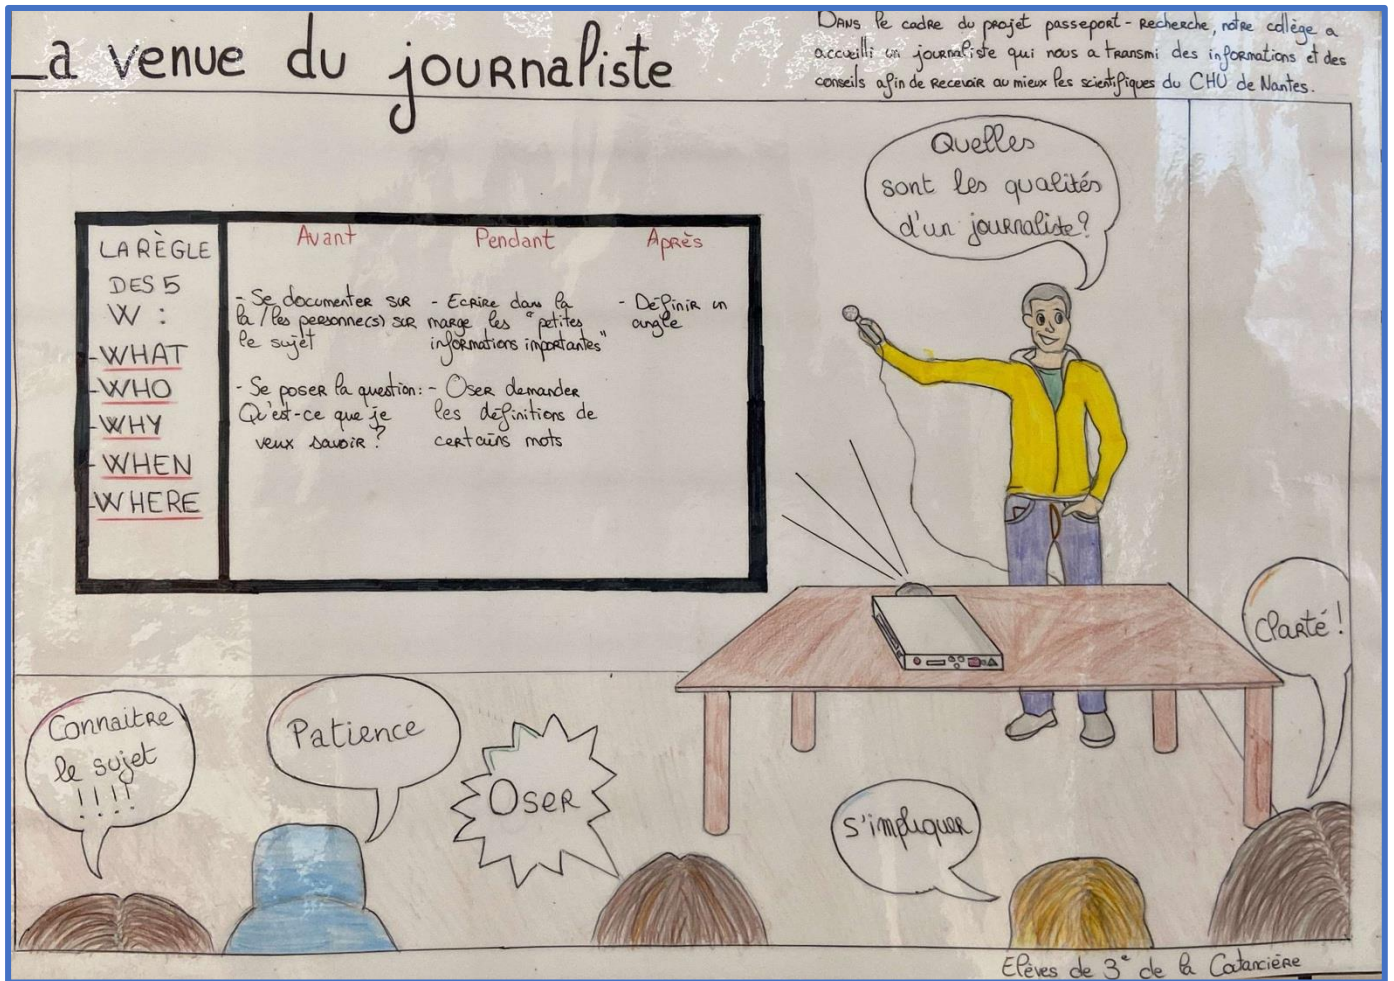 La venue du journaliste
DANS le cadre du projet passeport - Recherche, notre collège a
accueilli un journaliste qui nous a transmi des informations et des
conseils afin de recevoir au mieux les scientifiques du CHU de Nantes.
Quelles
sont les qualités
d'un journaliste?
LA RÈGLE
DES 5
W :
- WHAT
- WHO
- WHY
- WHEN
- WHERE
Avant
- Se documenter sur
la / les personne(s) sur
le sujet
- Se poser la question:
Qu'est-ce que je
veux savoir ?
Pendant
- Ecrire dans la
marge les "petites
informations importantes"
- Oser demander
les définitions de
certains mots
Après
- Définir un
angle
Clarté !
Connaitre
le sujet
!!!!
Patience
Oser
s'impliquer
Elèves de 3e de la Coutancière